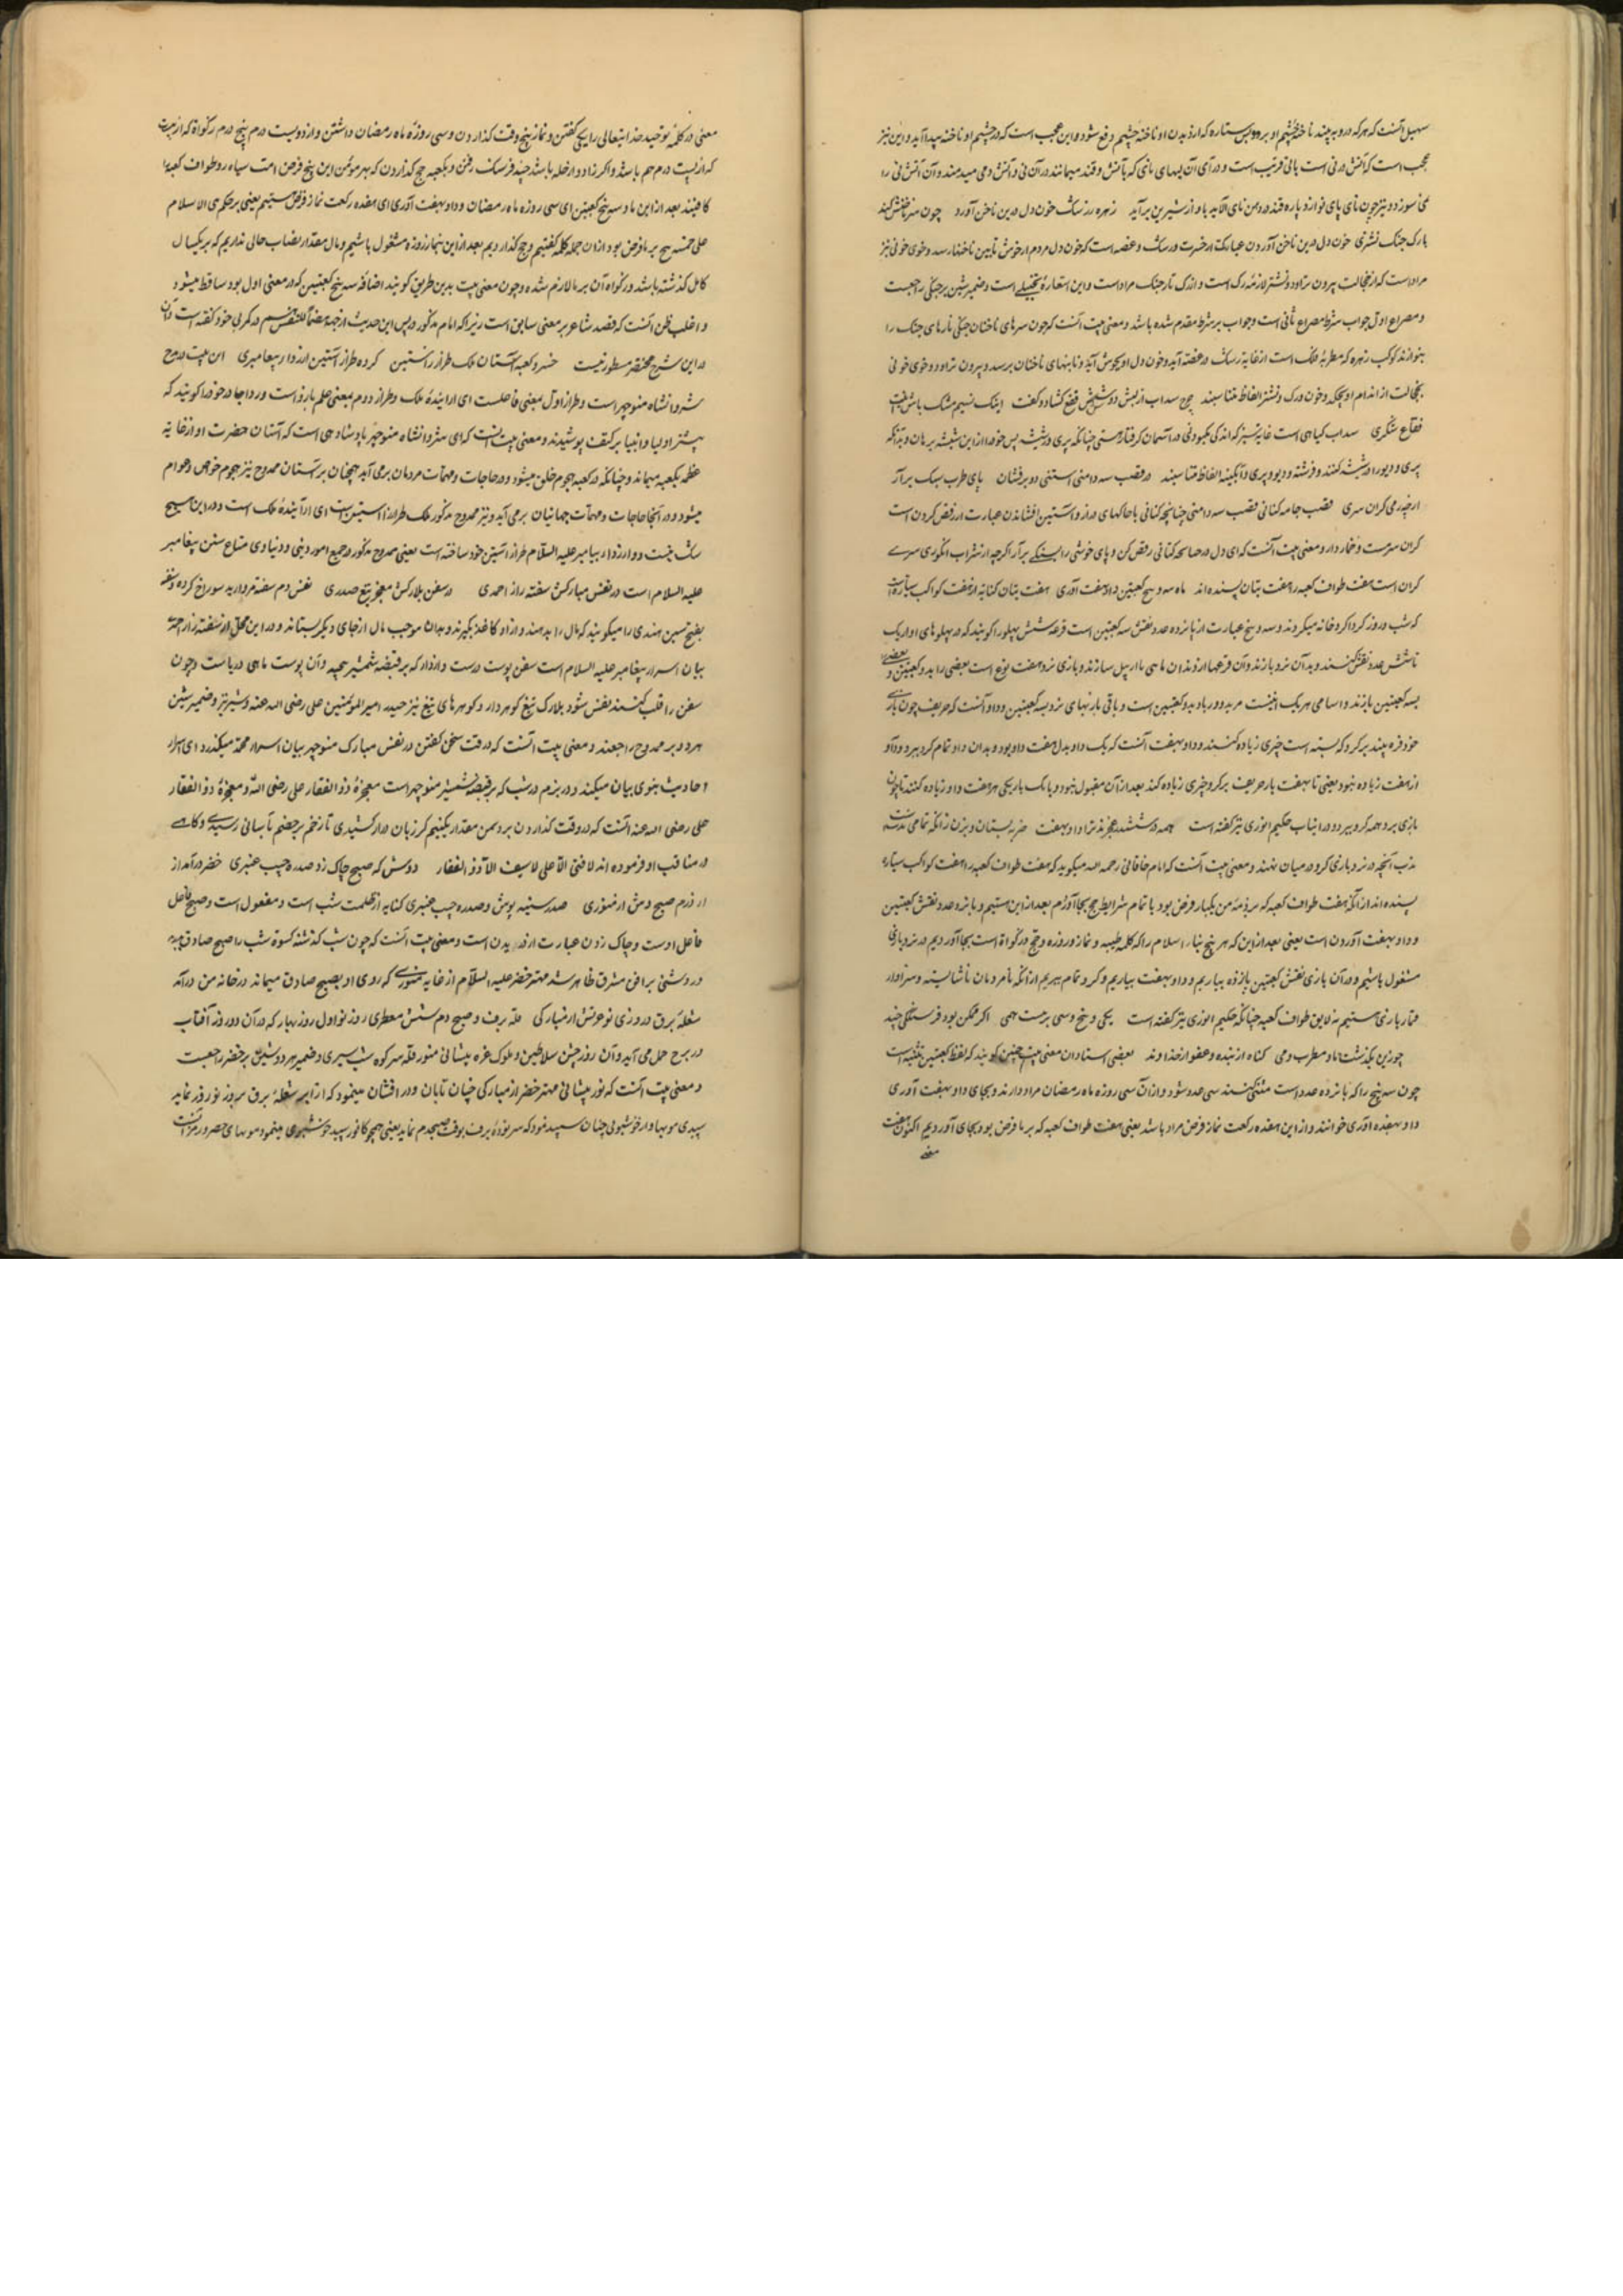 سهیل آنست که هرکه درو به بیند ناخنهٔ چشم او برود پس ستاره که از دیدن او ناخنهٔ چشم دفع شود و این عجب است که در چشم او ناخنه پیدا آید و این نیز
عجب است که آتش در نی است بانی قریب است و در آی آن لبهای نائی که بآتش و قند میمانند در آن نی و آتش دمی میدمند و آن آتش نی را
نمی سوزد و نیز چون نای پای نوا زد پاره قند در دهن نای آلاید باو از شیرین برآید زهره ز رشک خون دل در بن ناخن آورد چون سر ناخنش کند
بارک چنک نشتری خون دل در بن ناخن آوردن عبارت از حسرت و رشک و غصه است که خون دل مردم از جوش تا بن ناخنها رسد و خوی خونی نیز
مراد است که از خجالت بیرون تراود و نشتر لازمهٔ رک است و از رک تار چنک مراد است و این استعارهٔ تخییلی است و ضمیر شین بر چنکی راجعست
و مصراع اول جواب شرط مصراع ثانی است و جواب بر شرط مقدم شده باشد و معنی بیت آنست که چون سرهای ناخنان چنکی تارهای چنک را
بنوازند کوکب زهره که مطربهٔ فلک است از غایهٔ رشک در غصه آید و خون دل او بجوش آید و تا بنهای ناخنان برسد و بیرون تراود و خوی خونی
بخجالت از اندام او بچکد و خون و رک و نشتر الفاظ متناسبند چرخ سداب از لبش دوش فقع کشاد و کفت اینک نسیم مشک پاش اینت
فقاع شکری سداب کیاهی است غایه سبز که اندکی بکبودی در آسمان کرفتار هستی چنانکه پری در شیشه پس خود را از این شیشه برهان و بدانکه
پری و دیو را در شیشه کنند و فرشته و دیو و پری و آبکینه الفاظ متناسبند در قصب سه دامنی آستنی دو برفشان پای طرب سبک برآر
ارچه ز می کران سری قصب جامهٔ کتانی قصب سه دامنی چنانچه کتانی باچاکهای دراز و آستین افشاندن عبارت از رقص کردن است
کران سر مست و خمار دار و معنی بیت آنست که ای دل در جامهٔ کتانی رقص کن و پای خوشی را بسبکی برآر اکرچه از شراب انکوری سرت
کران است هفت طواف کعبه را هفت بتان بسنده اند ماه سه و پنج کعبتین داو هفت آوری هفت بتان کنایه از هفت کواکب سیاره است
که شب و روز کرداکرد خانه میکردند و سه و پنج عبارت از پانزده عدد نقش سه کعبتین است قرعهٔ شش پهلو را کویند که در پهلوهای او از یک
تا شش عدد نقش کنند و بدان نرد بازند و آن قرعها از دندان ماهی یا از پیل سازند و بازی نرد هفت نوع است بعضی را بدو کعبتین و بعضی
بسه کعبتین بازند و اسامی هر یک اینست
خود فره بیند بر کرو که بسته است چیزی زیاده کنند و داو بهفت آنست که یک داو بدل هفت داو بود و بدان داو تمام کرو ببرد و داو
از هفت زیاده نبود یعنی تا بهفت بار حریف بر کرو چیزی زیاده کند بعد از آن مقبول نبود و بانک باریکی هر هفت داو زیاده کنند تا چون
بازی برد همه کرو ببرد و در این باب حکیم انوری نیز کفته است همه در ششدر عجزند ترا داو بهفت ضربه بستان و بزن زانکه تمامی ندبست
ندب آنچه در نرد بازی کرو در میان نهند و معنی بیت آنست که امام خاقانی رحمه الله میکوید که هفت طواف کعبه را هفت کواکب سیاره
بسنده اند از آنکه هفت طواف کعبه که بر ذمهٔ من یکبار فرض بود با تمام شرایط حج بجا آوردم بعد از این مستیم و پانزده عدد نقش کعبتین
و داو بهفت آوردن است یعنی بعد از این که هر پنج بناء اسلام را که کلمه طیبه و نماز و روزه و حج و زکواة است بجا آوردیم در نرد بازی
مشغول باشیم و در آن بازی نقش کعبتین پانزده بیاریم و داو بهفت بیاریم و کرو تمام ببریم از آنکه نامردمان ناشایسته و سزاوار
قمار بازی هستیم نه لایق طواف کعبه چنانکه حکیم انوری نیز کفته است یکی و پنج و سی وز بیست نیمی اکر ممکن بود فرسنکی چند
چو زین بکذشت ما و مطرب و می کناه از بنده و عفو از خداوند بعضی استادان معنی بیت چنین کویند که لفظ کعبتین تثنیه است
چون سه پنج را که پانزده عدد است مثنی کنند سی عدد شود و از آن سی روزه ماه رمضان مراد دارند و بجای داو بهفت آوری
داو بهفده آوری خوانند و از این هفده رکعت نماز فرض مراد باشد یعنی هفت طواف کعبه که بر ما فرض بود بجای آوردیم اکنون هفت
معنی
معنی در کلمهٔ توحید خدایتعالی را یکی کفتن و نماز پنج وقت کذاردن و سی روزهٔ ماه رمضان داشتن و از دویست درم پنج درم زکواة که از بیست
که از بیست درم نیم باشد و اکر زاد و راحله باشد چند فرسنک رفتن و بکعبه حج کذاردن که بهر مؤمن این پنج فرض است سپاه رو طواف کعبه را
کافیند بعد از این ما و سه پنج کعبتین ای سی روزه ماه رمضان و داو بهفت آوری ای هفده رکعت نماز فرض مستیم یعنی بر حکم بنی الاسلام
علی خمس هیچ بر ما فرض بود از آن جمله کلمه کفتیم و حج کذاردیم بعد از این بنماز و روزه مشغول باشیم و مال مقدار نصاب حالی نداریم که بر یکسال
کامل کذشته باشد و زکواة آن بر ما لازم شده و چون معنی بیت بدین طریق کویند اضافهٔ سه پنج کعبتین که در معنی اول بود ساقط میشود
و اغلب ظن آنست که قصد شاعر بر معنی سابق است زیرا که امام مذکور در پس این حدیث از جهة هضماً للنفس قسم در کمرهی خود کفته است و آن
در این شرح مختصر مسطور نیست خسرو کعبه آستان ملک طراز راستین کرده طراز آستین از ردا پیغامبری این بیت در مدح
شروانشاه منوچهر است و طراز اول بمعنی فاعلست ای آرایندهٔ ملک و طراز دوم بمعنی علم بارز است و ردا چادر خود را کویند که
بیشتر اولیا و انبیا بر کتف پوشیدند و معنی بیت اینست که ای شروانشاه منوچهر پادشاهی است که آستان حضرت او از غایهٔ
عظمة بکعبه میماند و چنانکه در کعبه هجوم خلق میشود و در حاجات و مهمات مردمان برمی آید همچنان بر آستان ممدوح نیز هجوم خواص و عوام
میشود و در آنجا حاجات و مهمات جهانیان برمی آید و نیز ممدوح مذکور ملک طراز راستین است ای آرایندهٔ ملک است و در این هیچ
شک نیست و و از ردا پیامبر علیه السلام طراز آستین خود ساخته است یعنی ممدوح مذکور در جمیع امور دینی و دنیاوی متابع سنن پیغامبر
علیه السلام است در نفس مبارکش سفته راز احمدی در سفن بلارکش معجز تیغ حیدری نفس دم سفته مروارید سوراخ کرده و سفته
بفتح سین هندی را میکویند که مال را بدهند و از او کاغذ بکیرند و بدان موجب مال از جای دیکر بستانند و در این محل از سفته راز احمد
بیان اسرار پیغامبر علیه السلام است سفن پوست درست و ازدار که بر قبضه شمشیر پیچند و آن پوست ماهی دریاست و چون
سفن را قلب کنند نفس شود بلارک تیغ کوهردار و کوهرهای تیغ نیز حیدر امیر المؤمنین علی رضی الله عنه و شیر نیز و ضمیر شین
هر دو بر ممدوح راجعند و معنی بیت آنست که در وقت سخن کفتن در نفس مبارک منوچهر بیان اسرار محمد میکذرد ای اسرار
احادیث نبوی بیان میکند و در بزم در شب که بر قبضه شمشیر منوچهر است معجزهٔ ذوالفقار علی رضی الله و معجزهٔ ذوالفقار
علی رضی الله عنه آنست که در وقت کذاردن بر دشمن مقدار یکنیم کز زبان دراز کشیدی تا زخم بر خصم بآسانی رسیدی و کاهی
در مناقب او فرموده اند لا فتی الا علی لا سیف الا ذوالفقار دوش که صبح چاک زد صدره جیب عنبری خضر درآمد از
درم صبح وش از منوری صدر سینه پوش و صدره جیب عنبری کنایه از ظلمت شب است و مفعول است و صبح فاعل
فاعل اوست و چاک زدن عبارت از دریدن است و معنی بیت آنست که چون شب کذشته کسوة شب را صبح صادق بدرید
و روشنی بر افق مشرق ظاهر شد مهتر خضر علیه السلام از غایه منوری که روی او بصبح صادق میماند در خانه من درآمد
شعلهٔ برق و روزی نو غرهش از مبارکی قلهٔ برف و صبح دم شیبش معطری روز نو اول روز بهار که در آن دور روز آفتاب
در برج حمل می آید و آن روز جشن سلاطین و ملوک غره پیشانی منور قله سر کوه شیب پیری و ضمیر هر دو شین بر خضر راجعست
و معنی بیت آنست که نور پیشانی مهتر خضر از مبارکی چنان تابان و درافشان مینمود که از ابر شعلهٔ برق بروز نوروز نماید
سپیدی موی ها و از خوشبوئی چنان سپید نمود که سر تودهٔ برف بوقت صبحدم نماید یعنی همچو کافور سپید خوشبوی مینمود